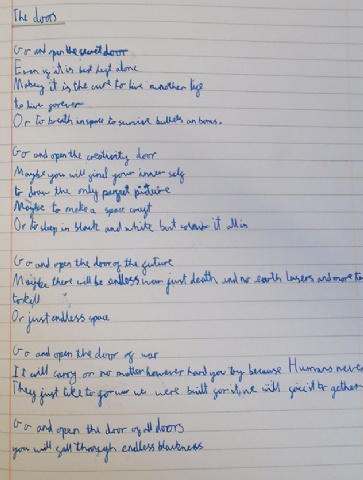 The doors
Go and open the secret door
Even if it is best kept alone
Mabey it is the cure to live another
to live forever
Or to breath in space to survive bullets an boms.
Go and open the creativity door
Maybe you will find your inner self
to draw the only perfect picture
Maybe to make a space
Or to in black and white but colour it all in
Go and open the door of the future
Maybe there will be endless war just death and no earth lasers and more
to kill
Or just endless space
Go and open the door of war
It will carry on no matter however hard you try because Humans never
They just like to go war we were built for it we will together
Go and open the door of all doors
you will fall through endless blackness